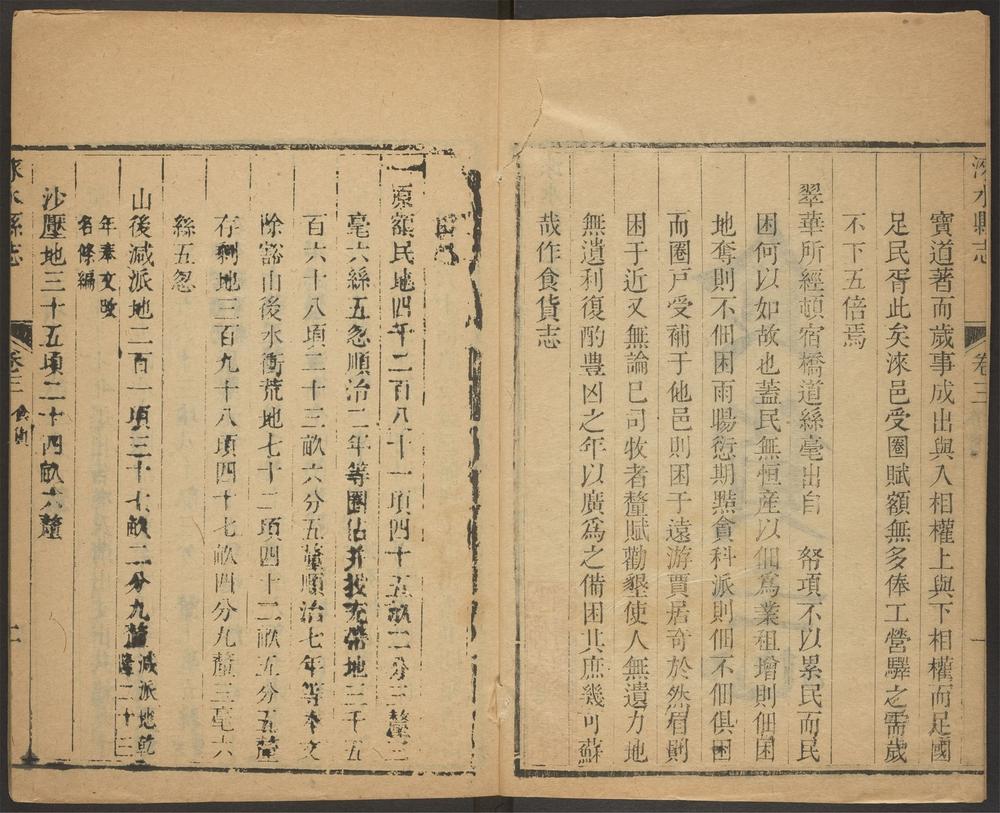 淶水縣志
卷三
一
寶道著而歲事成出與入相權上與下相權而足國
足民胥此矣淶邑受圈賦額無多俸工營驛之需歲
不下五倍焉
翠華所經頓宿橋道絲毫出自 帑項不以累民而民
困何以如故也蓋民無恒産以佃爲業租增則佃困
地奪則不佃困雨暘愆期㸃貪科派則佃不佃俱困
而圈戸受補于他邑則困于遠游賈居奇於然眉則
困于近又無論巳司牧者釐賦勸墾使人無遺力地
無遺利復酌豊凶之年以廣爲之備困其庶幾可蘇
哉作食貨志
一原額民地四千二百八十一項四十五畝二分三釐三
毫六絲五忽順治二年等圈佔并投充帶地三千五
百六十八項三十三畝六分五釐順治七年等奉文
除豁山後水衝荒地七十二項四十二畝五分五釐
存剩地三百九十八項四十七畝四分九釐三毫六
絲五忽
山後減派地二百一項三十七畝二分九釐減派地乾隆二十三
年奉文改
名條編
沙壓地三十五項二十四畝六釐
淶水縣志
卷三 食貨
二